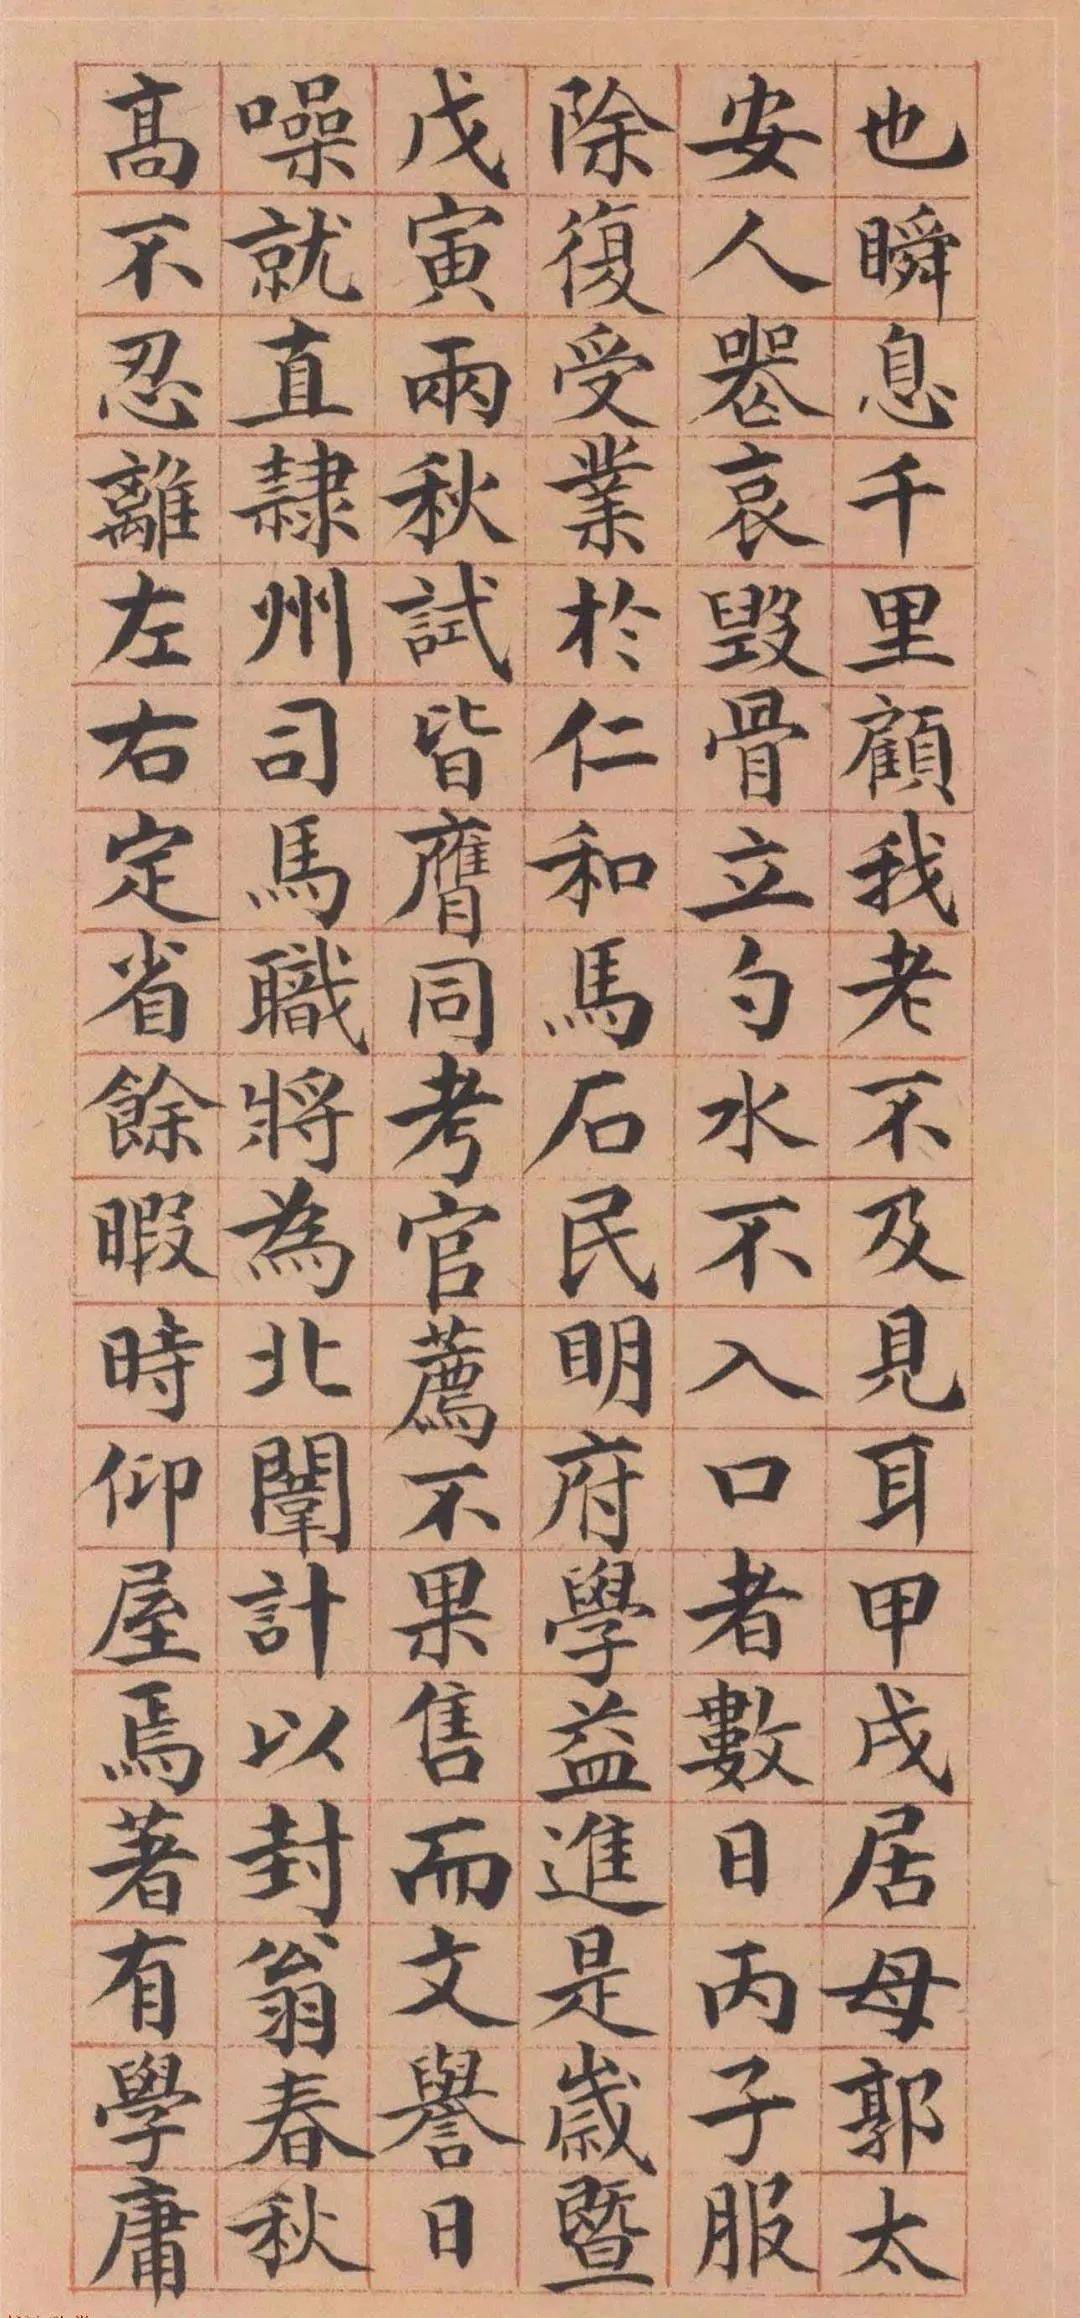 也瞬息千里顧我老不及見耳甲戌居母郭太
安人器哀毀骨立勺水不入口者數日丙子服
除復受業於仁和馬石民明府學益進是歲暨
戊寅兩秋試皆膺同考官薦不果售而文譽日
噪就直隸州司馬職將為北闈計以封翁春秋
高不忍離左右定省餘暇時仰屋焉著有學庸